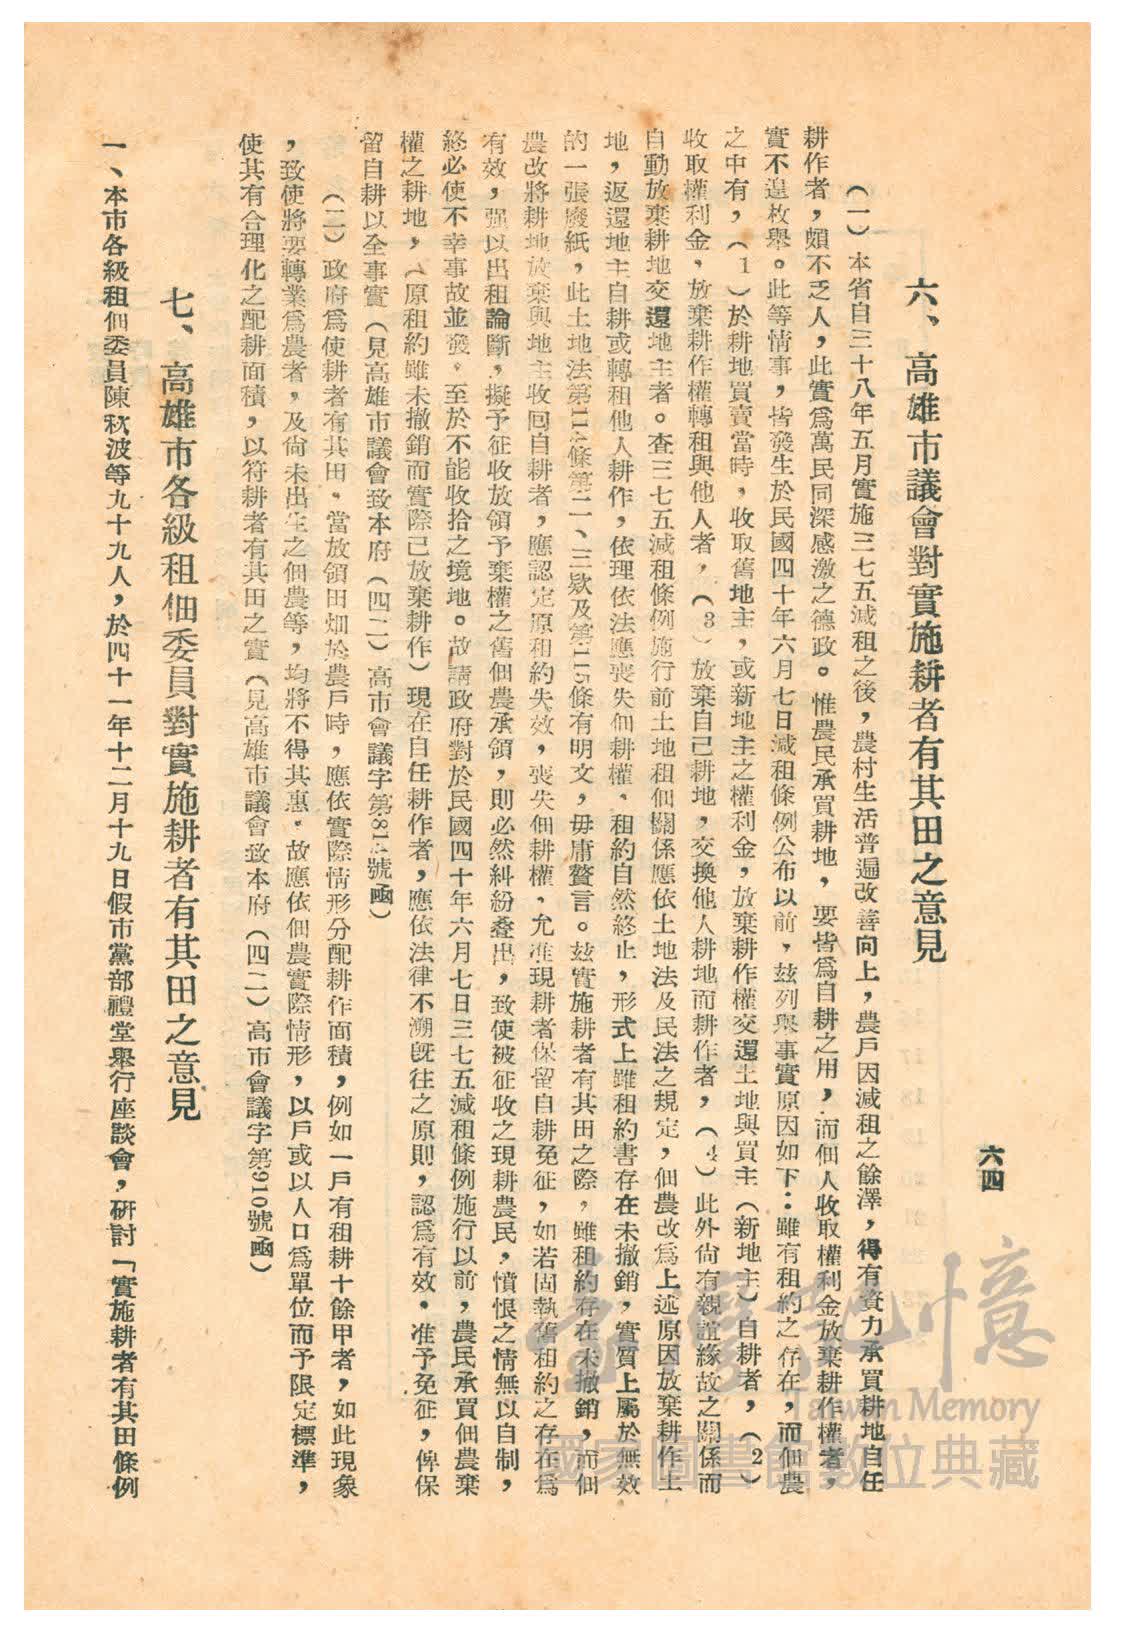 六四
六、高雄市議會對實施耕者有其田之意見
(一)本省自三十八年五月實施三七五減租之後，農村生活普遍改善向上，農戶因減租之餘澤，得有資力承買耕地自任
耕作者，頗不乏人，此實爲萬民同深感激之德政。惟農民承買耕地，要皆爲自耕之用，而佃人收取權利金放棄耕作權者，
實不遑枚舉。此等情事，皆發生於民國四十年六月七日減租條例公布以前，玆列舉事實原因如下：雖有租約之存在，而佃農
之中有，(1)於耕地買賣當時，收取舊地主，或新地主之權利金，放棄耕作權交還土地與買主(新地主)自耕者，(2)
收取權利金，放棄耕作權轉租與他人者，(3)放棄自己耕地，交換他人耕地而耕作者，(4)此外尙有親誼緣故之關係而
自動放棄耕地交還地主者。查三七五減租條例施行前土地租佃關係應依土地法及民法之規定，佃農改爲上述原因放棄耕作土
地，返還地主自耕或轉租他人耕作，依理依法應喪失佃耕權，租約自然終止，形式上雖租約書存在未撤銷，實質上屬於無效
的一張廢紙，此土地法第114條第二、三欵及第115條有明文，毋庸贅言。玆實施耕者有其田之際，雖租約存在未撤銷，而佃
農改將耕地放棄與地主收回自耕者，應認定原租約失效，喪失佃耕權，允准現耕者保留自耕免征，如若固執舊租約之存在爲
有效，强以出租論斷，擬予征收放領予棄權之舊佃農承領，則必然糾紛叠出，致使被征收之現耕農民，憤恨之情無以自制，
終必使不幸事故並發，至於不能收拾之境地。故請政府對於民國四十年六月七日三七五減租條例施行以前，農民承買佃農棄
權之耕地，(原租約雖未撤銷而實際已放棄耕作)現在自任耕作者，應依法律不溯旣往之原則，認爲有效，准予免征，俾保
留自耕以全事實(見高雄市議會致本府(四二)高市會議字第81號函)
(二)政府爲使耕者有其田，當放領田畑於農戶時，應依實際情形分配耕作面積，例如一戶有租耕十餘甲者，如此現象
，致使將要轉業爲農者，及尙未出生之佃農等，均將不得其惠，故應依佃農實際情形，以戶或以人口爲單位而予限定標準，
使其有合理化之配耕面積，以符耕者有其田之實(見高雄市議會致本府(四二)高市會議字第910號函)
七、高雄市各級租佃委員對實施耕者有其田之意見
一、本市各級租佃委員陳秋波等九十九人，於四十一年十二月十九日假市黨部禮堂舉行座談會，硏討「實施耕者有其田條例
臺灣記憶
Taiwan Memory
國家圖書館數位典藏